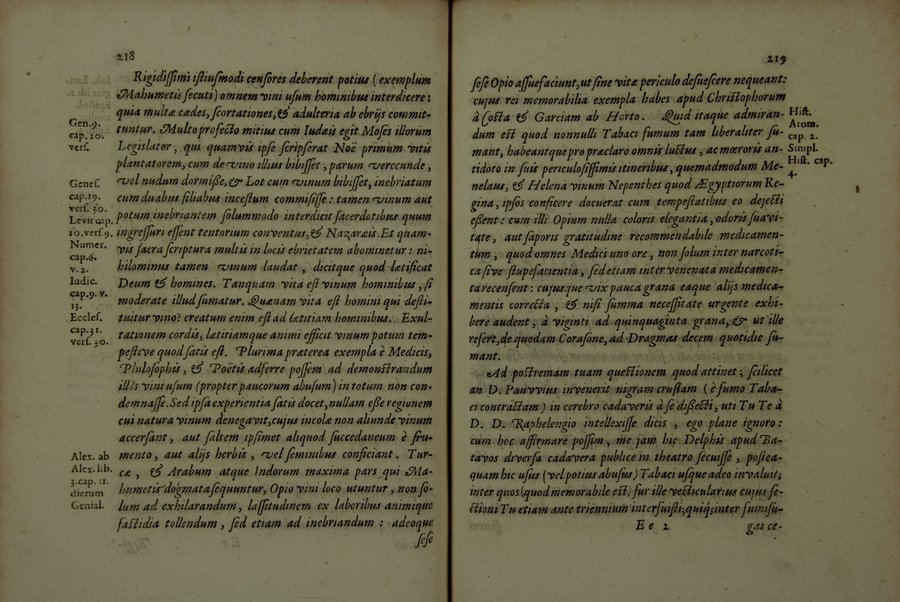 218
Rigidißimi istiusmodi censores deberent potius (exemplum
Mahumetis secuti) omnem vini usum hominibus interdicere;
quia multæ cædes, scortationes, & adulteria ab ebrijs commit-
tuntur. Multo profecto mitius cum Iudæis egit Moses illorum
Legislator, qui quamvis ipse scripserat Noë primum vitis
plantatorem, cum de vino illius bibisset, parum verecunde,
vel nudum dormiße, & Lot cum vinum bibisset, inebriatum
cum duabus filiabus incestum commisisse: tamen vinum aut
potum inebriantem solummodo interdicit sacerdotibus quum
ingressuri essent tentorium conventus, & Nazaræis. Et quam-
vis sacra scriptura multis in locis ebrietatem abominetur: ni-
hilominus tamen vinum laudat, dicitque quod lætificat
Deum & homines. Tanquam vita est vinum hominibus, si
moderate illud sumatur. Quænam vita est homini qui desti-
tuitur vino? creatum enim est ad lætitiam hominibus. Exul-
tationem cordis, lætitiamque animi efficit vinum potum tem-
pestive quod satis est. Plurima præterea exempla è Medicis,
Philosophis, & Poëtis adferre possem ad demonstrandum
illos vini usum (propter paucorum abusum) in totum non con-
demnasse. Sed ipsa experientia satis docet, nullam eße regionem
cui natura vinum denegavit, cujus incolæ non aliunde vinum
accersant, aut saltem ipsimet aliquod succedaneum è fru-
mento, aut alijs herbis, vel seminibus conficiant. Tur-
cæ, & Arabum atque Indorum maxima pars qui Ma-
humetis dogmata sequuntur, Opio vini loco utuntur, non so-
lum ad exhilarandum, lassitudinem ex laboribus animique
fastidia tollendum, sed etiam ad inebriandum: adeoque
sese
Gen. 9.
cap. 20.
vers.
Genes.
cap. 19.
vers. 30.
Levit cap.
10. vers. 9.
Numer.
cap. 6.
v. 2.
Iudic.
cap. 9. v.
13.
Eccles.
cap. 31.
vers. 30.
Alex. ab
Alex. lib.
3. cap. 11.
dierum
Genial.
219
sese Opio assuefaciunt, ut sine vitæ periculo desuescere nequeant:
cujus rei memorabilia exempla habes apud Christophorum
à Costa & Garciam ab Horto. Quid itaque admiran-
dum est quod nonnulli Tabaci fumum tam liberaliter su-
mant, habeantque pro præclaro omnis luctus, ac mœroris an-
tidoto in suis periculosißimis itineribus, quemadmodum Me-
nelaus, & Helena vinum Nepenthes quod Ægyptiorum Re-
gina, ipsos conficere docuerat cum tempestatibus eo dejecti
eßent: cum illi Opium nulla coloris elegantia, odoris suavi-
tate, aut saporis gratitudine recommendabile medicamen-
tum, quod omnes Medici uno ore, non solum inter narcoti-
ca sive stupefacientia, sed etiam inter venenata medicamen-
ta recensent: cujusque vix pauca grana eaque alijs medica-
mentis correcta, & nisi summa necessitate urgente exhi-
bere audent, à viginti ad quinquaginta grana, & ut ille
refert, de quodam Corasone, ad Dragmas decem quotidie su-
mant.
Ad postremam tuam quæstionem quod attinet; scilicet
an D. Pauvvius invenerit nigram crustam (è fumo Taba-
ci contractam) in cerebro cadaveris à se dißecti, uti Tu Te à
D. D. Raphelengio intellexisse dicis, ego plane ignoro:
cum hoc affirmare possim, me jam hic Delphis apud Ba-
tavos diversa cadavera publice in theatro secuisse, postea-
quam hic usus (vel potius abusus) Tabaci usque adeo invaluit;
inter quos (quod memorabile est) fur ille vectticularius cujus se-
ctioni Tu etiam ante triennium interfuisti; quiq; inter fumisu-
E e 2
gas ce-
Hist.
Arom.
cap. 2.
Simpl.
Hist. cap.
4.